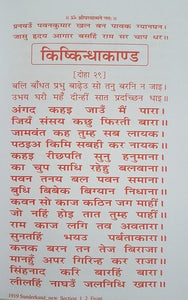 ॥ ॐ श्रीपरमात्मने नमः ॥
प्रनवउँ पवनकुमार खल बन पावक ग्यानघन।
जासु हृदय आगार बसहिं राम सर चाप धर॥
किष्किन्धाकाण्ड
[दोहा २९]
बलि बाँधत प्रभु बाढ़ेउ सो तनु बरनि न जाइ।
उभय घरी महँ दीन्हीं सात प्रदच्छिन धाइ॥
अंगद कहइ जाउँ मैं पारा।
जियँ संसय कछु फिरती बारा॥
जामवंत कह तुम्ह सब लायक।
पठइअ किमि सबही कर नायक॥
कहइ रीछपति सुनु हनुमाना।
का चुप साधि रहेहु बलवाना॥
पवन तनय बल पवन समाना।
बुधि बिबेक बिग्यान निधाना॥
कवन सो काज कठिन जग माहीं।
जो नहिं होइ तात तुम्ह पाहीं॥
राम काज लगि तव अवतारा।
सुनतहिं भयउ पर्बताकारा॥
कनक बरन तन तेज बिराजा।
मानहुँ अपर गिरिन्ह कर राजा॥
सिंहनाद करि बारहिं बारा।
लीलहिं नाघउँ जलनिधि खारा॥
1919 Sunderkand_new Section_1_2_Front